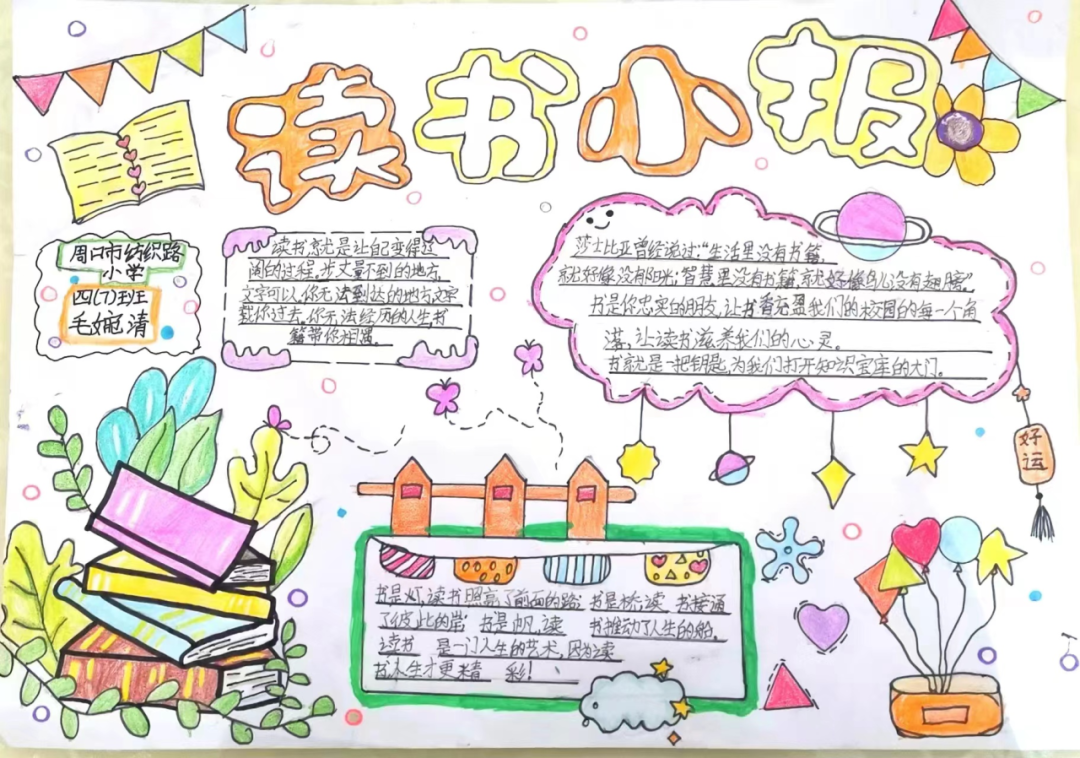 读书小报
周口市纺织路
小学
四(7)班
毛婉清
读书,就是让自己变得辽
阔的过程,步丈量不到的地方,
文字可以,你无法到达的地方,文字
载你过去,你无法经历的人生,书
籍带你相遇。
莎士比亚曾经说过:“生活里没有书籍,
就好像没有阳光;智慧里没有书籍,就好像鸟儿没有翅膀”
书是你忠实的朋友,让书香充盈我们的校园的每一个角
落,让读书滋养我们的心灵。
书就是一把钥匙,为我们打开知识宝库的大门。
好
运
书是灯,读书照亮了前面的路;书是桥,读 书接通
了彼此的岸 书是帆,读 书推动了人生的船。
读书 是一门人生的艺术,因为读
书,人生才更精 彩!